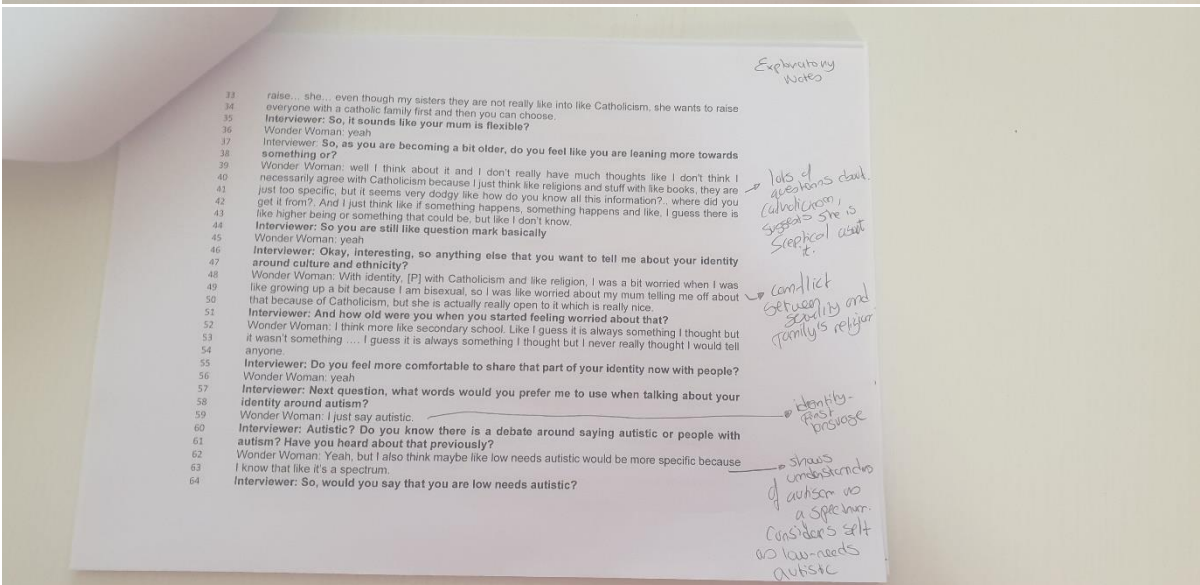 Exploratory
Notes
33 raise... she... even though my sisters they are not really like into like Catholicism, she wants to raise
34 everyone with a catholic family first and then you can choose.
35 Interviewer: So, it sounds like your mum is flexible?
36 Wonder Woman: yeah
37 Interviewer: So, as you are becoming a bit older, do you feel like you are leaning more towards
38 something or?
39 Wonder Woman: well I think about it and I don't really have much thoughts like I don't think I
40 necessarily agree with Catholicism because I just think like religions and stuff with like books, they are
41 just too specific, but it seems very dodgy like how do you know all this information?.. where did you
42 get it from?. And I just think like if something happens, something happens and like, I guess there is
43 like higher being or something that could be, but like I don't know.
44 Interviewer: So you are still like question mark basically
45 Wonder Woman: yeah
46 Interviewer: Okay, interesting, so anything else that you want to tell me about your identity
47 around culture and ethnicity?
48 Wonder Woman: With identity, [P] with Catholicism and like religion, I was a bit worried when I was
49 like growing up a bit because I am bisexual, so I was like worried about my mum telling me off about
50 that because of Catholicism, but she is actually really open to it which is really nice.
51 Interviewer: And how old were you when you started feeling worried about that?
52 Wonder Woman: I think more like secondary school. Like I guess it is always something I thought but
53 it wasn't something .... I guess it is always something I thought but I never really thought I would tell
54 anyone.
55 Interviewer: Do you feel more comfortable to share that part of your identity now with people?
56 Wonder Woman: yeah
57 Interviewer: Next question, what words would you prefer me to use when talking about your
58 identity around autism?
59 Wonder Woman: I just say autistic.
60 Interviewer: Autistic? Do you know there is a debate around saying autistic or people with
61 autism? Have you heard about that previously?
62 Wonder Woman: Yeah, but I also think maybe like low needs autistic would be more specific because
63 I know that like it's a spectrum.
64 Interviewer: So, would you say that you are low needs autistic?
lots of
questions about
Catholicism,
suggests she is
sceptical about
it.
conflict
between
and
family's religion
identity-
first
language
shows
understanding
of autism as
a spectrum.
Considers self
as low-needs
autistic